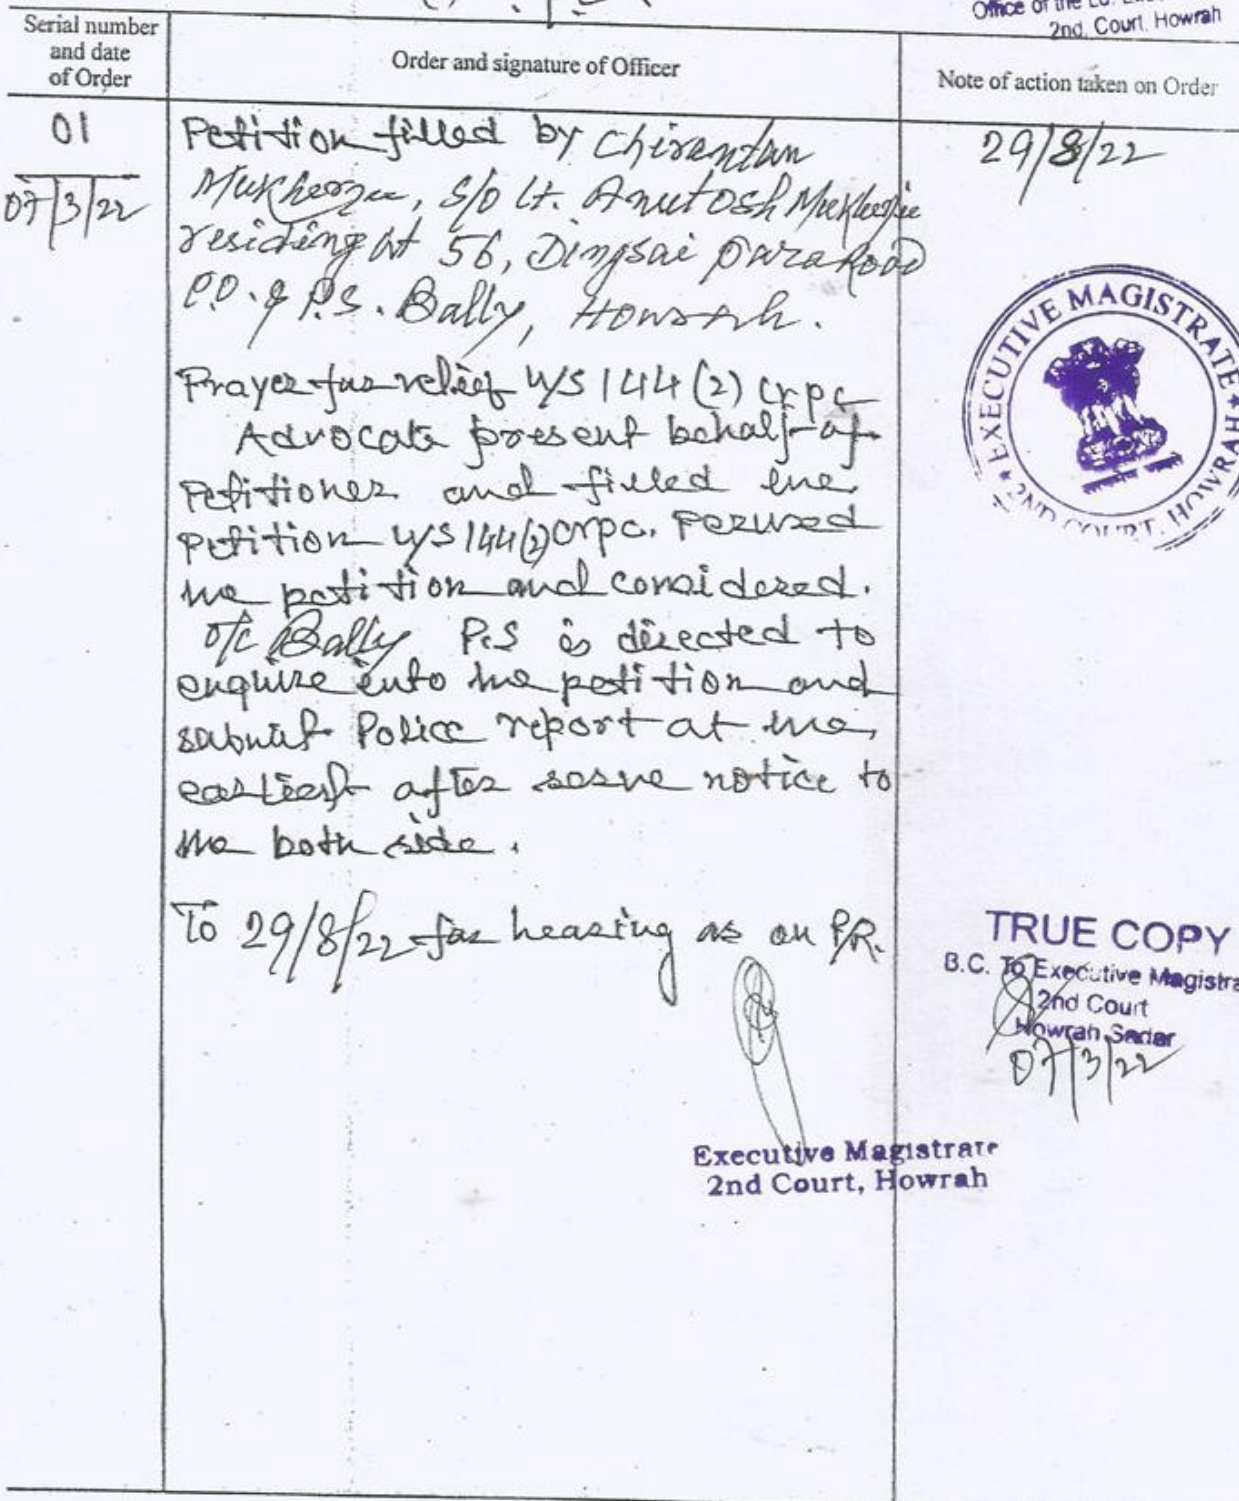 Office of the Ld.
2nd. Court. Howrah
Serial number
and date
of Order
Order and signature of Officer
Note of action taken on Order
01
07/3/22
Petition filled by Chirantan
Mukherjee, S/O Lt. Anutosh Mukherjee
residing at 56, Dingsai para Road
P.O. & P.S. Bally, Howrah.
Prayer for relief u/s 144 (2) crpc
Advocate present behalf of
Petitioner and filled the
petition u/s 144(2) crpc. Perused
the petition and considered.
O/C Bally P.S is directed to
enquire into the petition and
submit Police report at the
earliest after serve notice to
the both side.
To 29/8/22 for hearing as on P/R.
Executive Magistrate
2nd Court, Howrah
29/8/22
EXECUTIVE MAGISTRATE
2ND COURT, HOWRAH
TRUE COPY
B.C. To Executive Magistra
2nd Court
Howrah Sadar
07/3/22